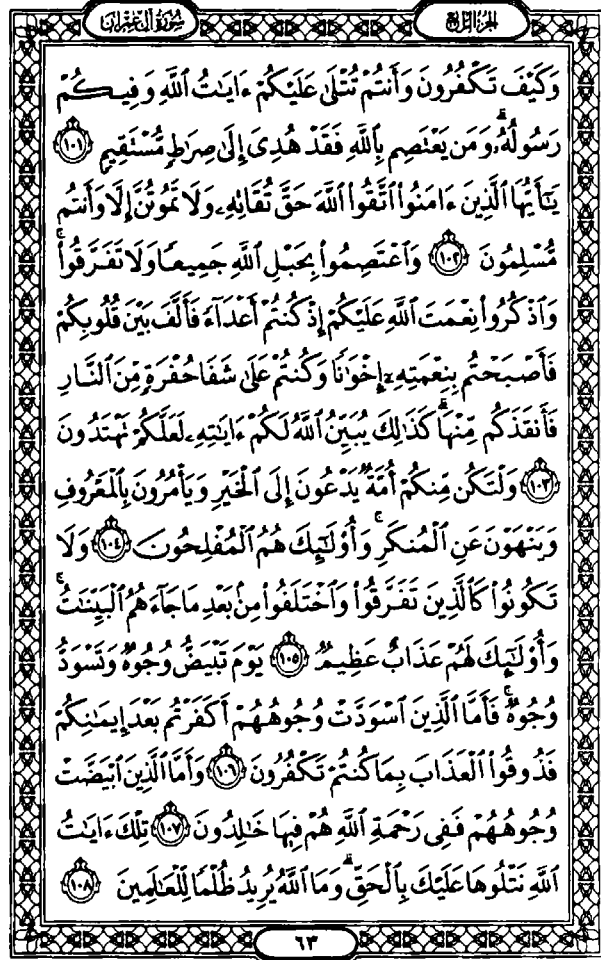 سُورَةُ آلِ عِمْرَان
الجُزءُ الرَّابِع
وَكَيْفَ تَكْفُرُونَ وَأَنتُمْ تُتْلَىٰ عَلَيْكُمْ ءَايَٰتُ ٱللَّهِ وَفِيكُمْ
رَسُولُهُۥۗ وَمَن يَعْتَصِم بِٱللَّهِ فَقَدْ هُدِىَ إِلَىٰ صِرَٰطٍ مُّسْتَقِيمٍ ١٠١
يَٰٓأَيُّهَا ٱلَّذِينَ ءَامَنُوا۟ ٱتَّقُوا۟ ٱللَّهَ حَقَّ تُقَاتِهِۦ وَلَا تَمُوتُنَّ إِلَّا وَأَنتُم
مُّسْلِمُونَ ١٠٢ وَٱعْتَصِمُوا۟ بِحَبْلِ ٱللَّهِ جَمِيعًا وَلَا تَفَرَّقُوا۟ۚ
وَٱذْكُرُوا۟ نِعْمَتَ ٱللَّهِ عَلَيْكُمْ إِذْ كُنتُمْ أَعْدَآءً فَأَلَّفَ بَيْنَ قُلُوبِكُمْ
فَأَصْبَحْتُم بِنِعْمَتِهِۦٓ إِخْوَٰنًا وَكُنتُمْ عَلَىٰ شَفَا حُفْرَةٍ مِّنَ ٱلنَّارِ
فَأَنقَذَكُم مِّنْهَاۗ كَذَٰلِكَ يُبَيِّنُ ٱللَّهُ لَكُمْ ءَايَٰتِهِۦ لَعَلَّكُمْ تَهْتَدُونَ
١٠٣ وَلْتَكُن مِّنكُمْ أُمَّةٌ يَدْعُونَ إِلَى ٱلْخَيْرِ وَيَأْمُرُونَ بِٱلْمَعْرُوفِ
وَيَنْهَوْنَ عَنِ ٱلْمُنكَرِۚ وَأُو۟لَٰٓئِكَ هُمُ ٱلْمُفْلِحُونَ ١٠٤ وَلَا
تَكُونُوا۟ كَٱلَّذِينَ تَفَرَّقُوا۟ وَٱخْتَلَفُوا۟ مِنۢ بَعْدِ مَا جَآءَهُمُ ٱلْبَيِّنَٰتُۚ
وَأُو۟لَٰٓئِكَ لَهُمْ عَذَابٌ عَظِيمٌ ١٠٥ يَوْمَ تَبْيَضُّ وُجُوهٌ وَتَسْوَدُّ
وُجُوهٌۚ فَأَمَّا ٱلَّذِينَ ٱسْوَدَّتْ وُجُوهُهُمْ أَكَفَرْتُم بَعْدَ إِيمَٰنِكُمْ
فَذُوقُوا۟ ٱلْعَذَابَ بِمَا كُنتُمْ تَكْفُرُونَ ١٠٦ وَأَمَّا ٱلَّذِينَ ٱبْيَضَّتْ
وُجُوهُهُمْ فَفِى رَحْمَةِ ٱللَّهِ هُمْ فِيهَا خَٰلِدُونَ ١٠٧ تِلْكَ ءَايَٰتُ
ٱللَّهِ نَتْلُوهَا عَلَيْكَ بِٱلْحَقِّۗ وَمَا ٱللَّهُ يُرِيدُ ظُلْمًا لِّلْعَٰلَمِينَ ١٠٨
٦٣